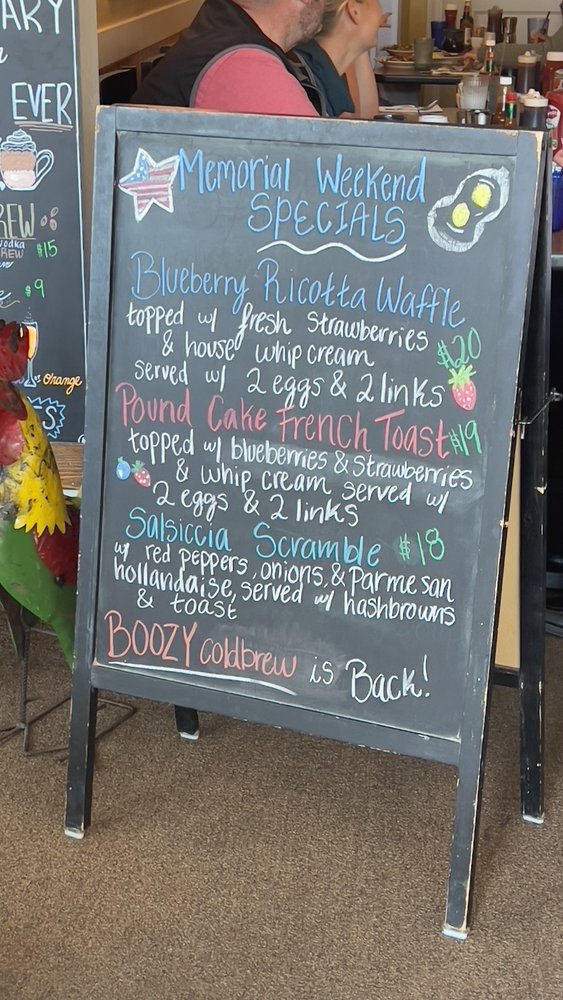 ARY
EVER
REW
vodka
REW
$15
$9
orange
Memorial Weekend
SPECIALS
Blueberry Ricotta Waffle
topped w/ fresh strawberries
& house whip cream
$20
served w/ 2 eggs & 2 links
Pound Cake French Toast $19
topped w/ blueberries & strawberries
& whip cream served w/
2 eggs & 2 links
Salsiccia Scramble $18
w/ red peppers, onions, & parmesan
hollandaise, served w/ hashbrowns
& toast
BOOZY coldbrew is Back!